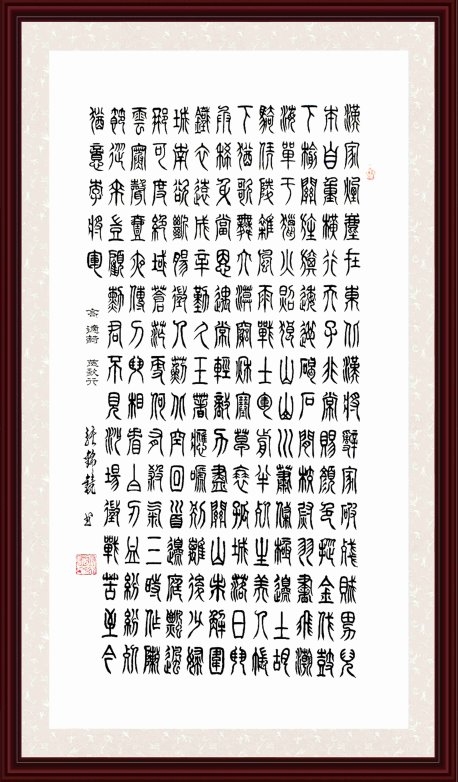 漢家煙塵在東北漢將辭家破殘賊男兒
本自重橫行天子非常賜顏色摐金伐鼓
下榆關旌旆逶迤碣石間校尉羽書飛瀚
海單于獵火照狼山山川蕭條極邊土胡
騎憑陵雜風雨戰士軍前半死生美人帳
下猶歌舞大漠窮秋塞草衰孤城落日鬥
兵稀身當恩遇常輕敵力盡關山未解圍
鐵衣遠戍辛勤久玉箸應啼別離後少婦
城南欲斷腸征人薊北空回首邊庭飄遙
那可度絕域蒼茫更何有殺氣三時作陣
雲寒聲壹夜傳刁斗相看白刃血紛紛死
節從來豈顧勳君不見沙場征戰苦至今
猶憶李將軍
高適詩 燕歌行